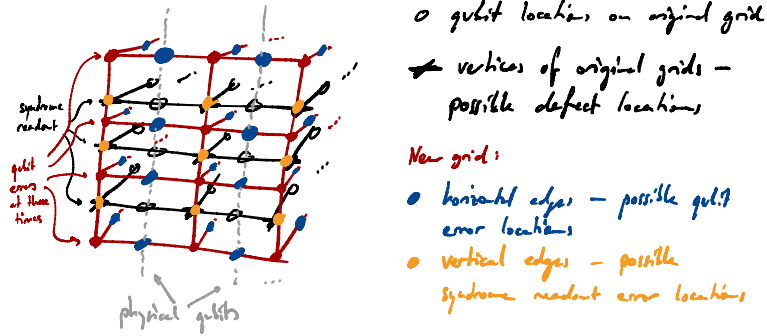 syndrome
readout
qubit
errors
at three
times
physical qubits
qubit locations on original grid
vertices of original grids –
possible defect locations
New grid:
horizontal edges – possible qubit
error locations
vertical edges – possible
syndrome readout error locations